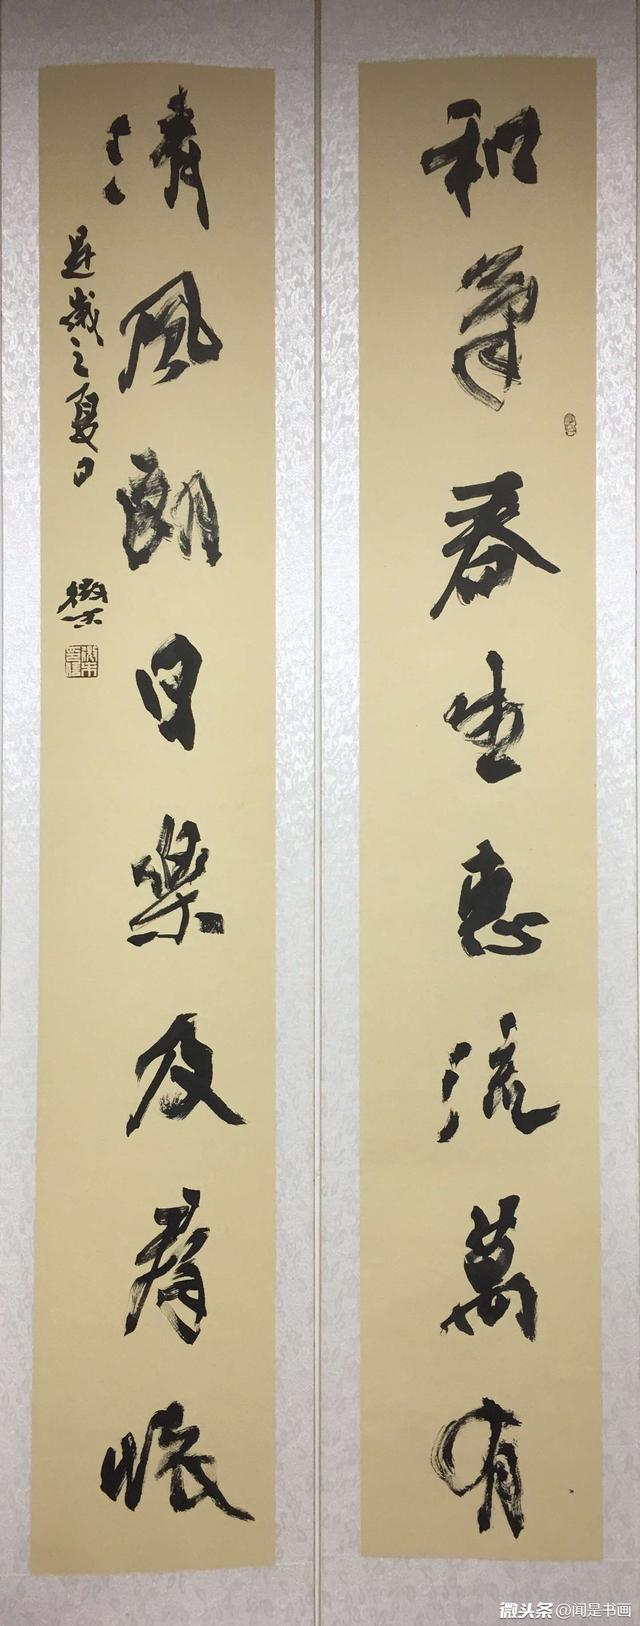 和氣春生惠流萬有
清風朗日樂及群懷
是歲之夏日
微头条 @闻是书画